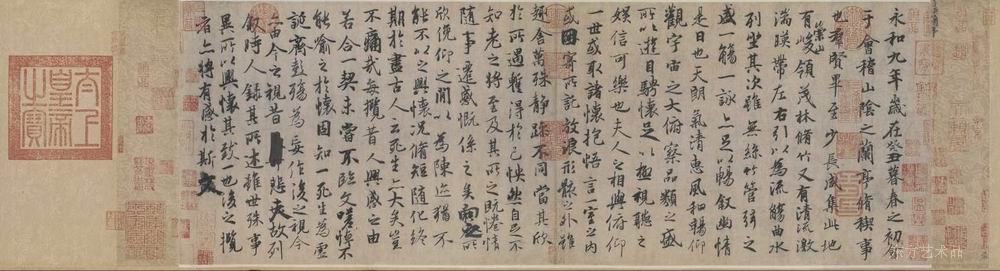 永和九年歲在癸丑暮春之初會
于會稽山陰之蘭亭脩稧事
也群賢畢至少長咸集此地
有崇山峻領茂林脩竹又有清流激
湍暎帶左右引以為流觴曲水
列坐其次雖無絲竹管弦之
盛一觴一詠亦足以暢敘幽情
是日也天朗氣清惠風和暢仰
觀宇宙之大俯察品類之盛
所以遊目騁懷足以極視聽之
娛信可樂也夫人之相與俯仰
一世或取諸懷抱悟言一室之內
或因寄所託放浪形骸之外雖
趣舍萬殊靜躁不同當其欣
於所遇蹔得於己怏然自足不
知老之將至及其所之既惓情
隨事遷感慨係之矣向之所
欣俛仰之閒以為陳迹猶不
能不以之興懷況脩短隨化終
期於盡古人云死生亦大矣豈
不痛哉每攬昔人興感之由
若合一契未嘗不臨文嗟悼不
能喻之於懷固知一死生為虛
誕齊彭殤為妄作後之視今
亦由今之視昔悲夫故列
敘時人錄其所述雖世殊事
異所以興懷其致一也後之攬
者亦將有感於斯文
太上皇帝之寶
东方艺术品